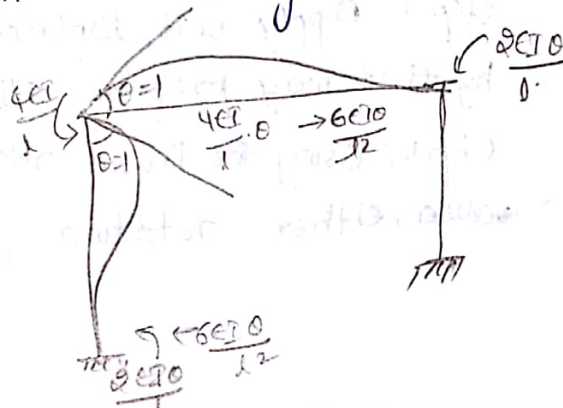 θ=1
2EIθ
l
4EI
l
4EI/l .θ → 6EIθ/l²
θ=1
←6EIθ
l²
2EIθ
l